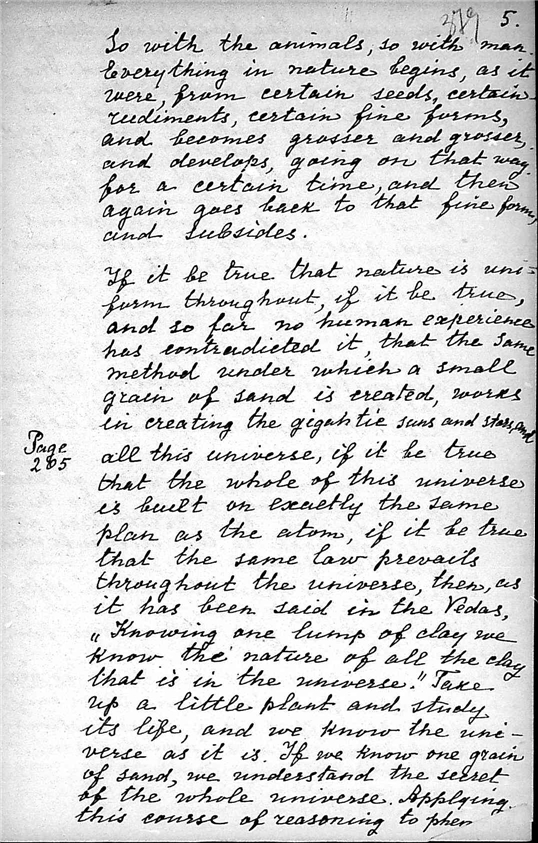 379 5.
So with the animals, so with man.
Everything in nature begins, as it
were, from certain seeds, certain
rudiments, certain fine forms,
and becomes grosser and grosser,
and develops, going on that way
for a certain time, and then
again goes back to that fine form,
and subsides.
If it be true that nature is uni-
form throughout, if it be true,
and so far no human experience
has contradicted it, that the same
method under which a small
grain of sand is created, works
in creating the gigantic suns and stars, and
Page
285
all this universe, if it be true
that the whole of this universe
is built on exactly the same
plan as the atom, if it be true
that the same law prevails
throughout the universe, then, as
it has been said in the Vedas,
„Knowing one lump of clay we
know the nature of all the clay
that is in the universe." Take
up a little plant and study
its life, and we know the uni-
verse as it is. If we know one grain
of sand, we understand the secret
of the whole universe. Applying
this course of reasoning to phen